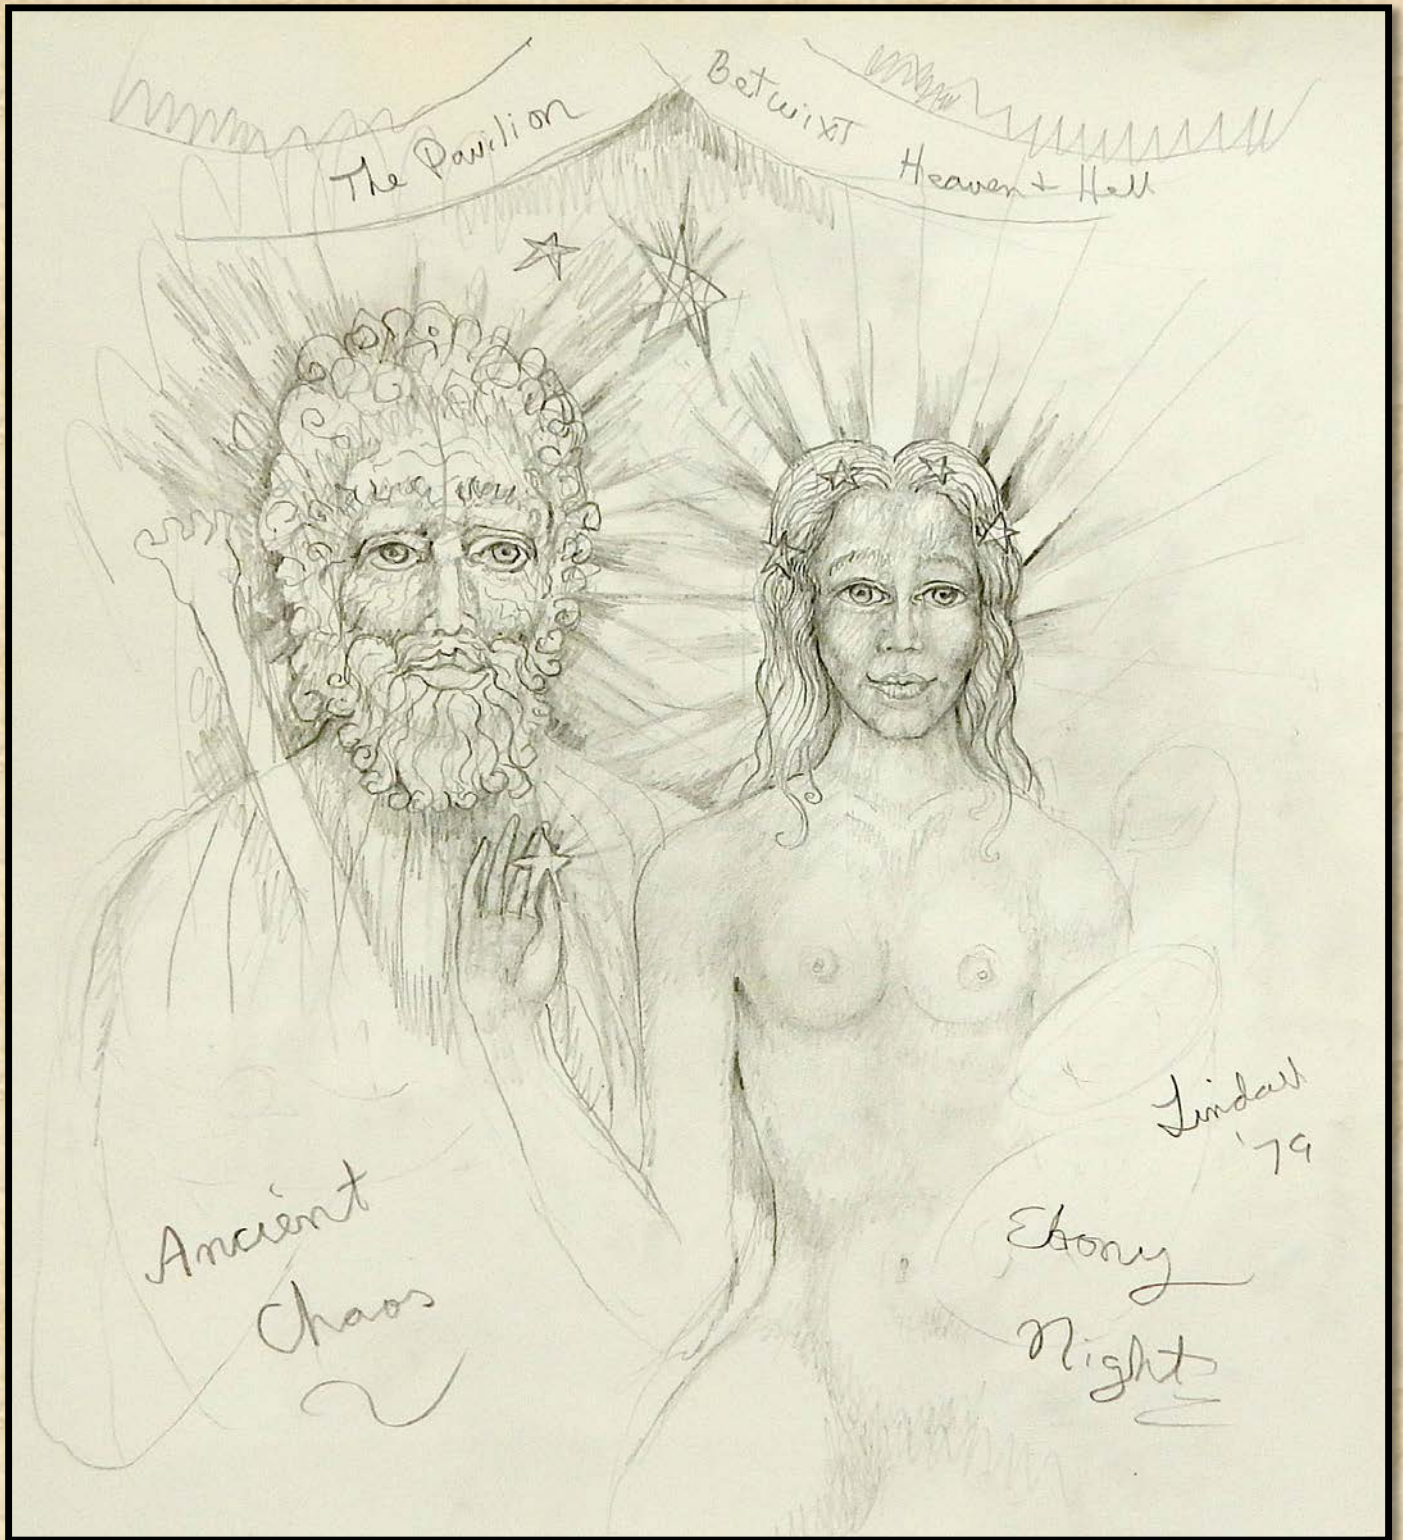 The Pavilion Betwixt Heaven + Hell
Lindall
'79
Ancient
Chaos
Ebony
Night